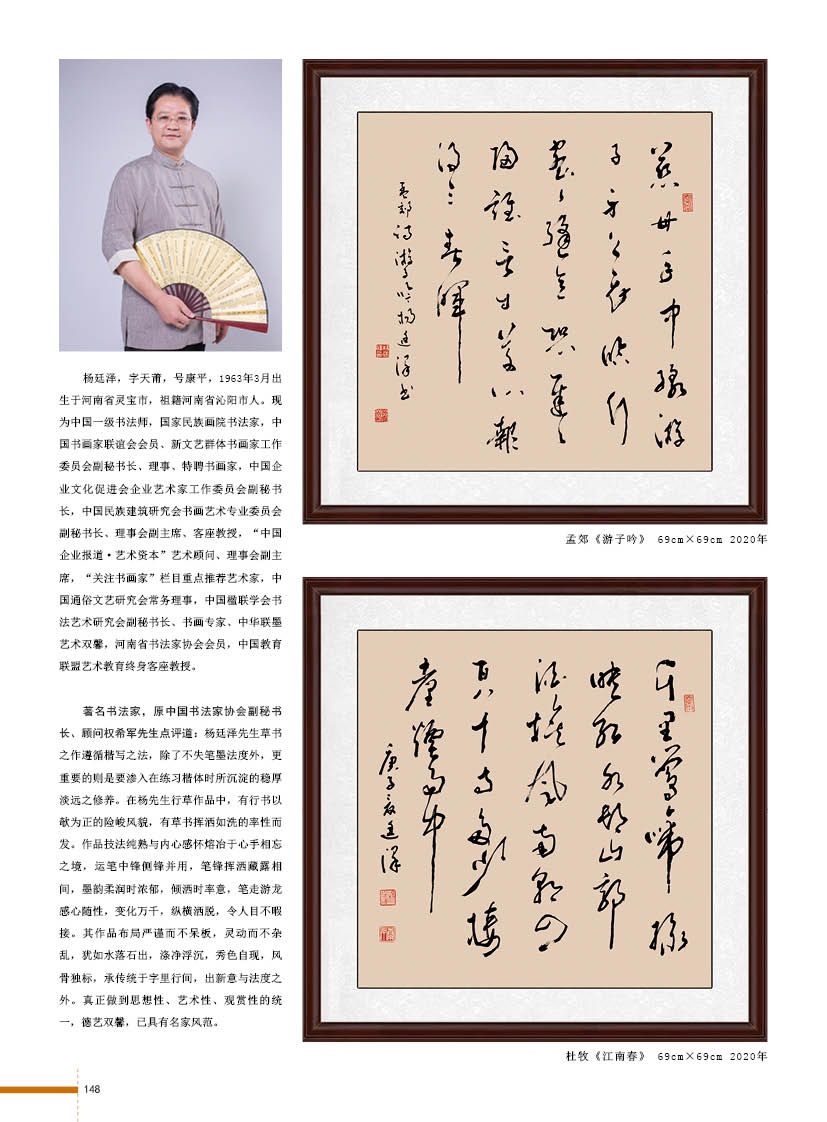 杨廷泽，字天莆，号康平，1963年3月出
生于河南省灵宝市，祖籍河南省沁阳市人。现
为中国一级书法师，国家民族画院书法家，中
国书画家联谊会会员、新文艺群体书画家工作
委员会副秘书长、理事、特聘书画家，中国企
业文化促进会企业艺术家工作委员会副秘书
长，中国民族建筑研究会书画艺术专业委员会
副秘书长、理事会副主席、客座教授，“中国
企业报道·艺术资本”艺术顾问、理事会副主
席，“关注书画家”栏目重点推荐艺术家，中
国通俗文艺研究会常务理事，中国楹联学会书
法艺术研究会副秘书长、书画专家、中华联墨
艺术双馨，河南省书法家协会会员，中国教育
联盟艺术教育终身客座教授。
著名书法家，原中国书法家协会副秘书
长、顾问权希军先生点评道：杨廷泽先生草书
之作遵循楷写之法，除了不失笔墨法度外，更
重要的则是要渗入在练习楷体时所沉淀的稳厚
淡远之修养。在杨先生行草作品中，有行书以
欹为正的险峻风貌，有草书挥洒如洗的率性而
发。作品技法纯熟与内心感怀熔冶于心手相忘
之境，运笔中锋侧锋并用，笔锋挥洒藏露相
间，墨韵柔润时浓郁，倾洒时率意，笔走游龙
感心随性，变化万千，纵横洒脱，令人目不暇
接。其作品布局严谨而不呆板，灵动而不杂
乱，犹如水落石出，涤净浮沉，秀色自现，风
骨独标，承传统于字里行间，出新意与法度之
外。真正做到思想性、艺术性、观赏性的统
一，德艺双馨，已具有名家风范。
慈母手中线游
子身上衣临行
密密缝意恐迟迟
归谁言寸草心报
得三春晖
孟郊诗游子吟杨廷泽书
孟郊《游子吟》 69cm×69cm 2020年
千里莺啼绿
映红水村山郭
酒旗风南朝四
百八十寺多少楼
台烟雨中
庚子夏廷泽
杜牧《江南春》 69cm×69cm 2020年
148